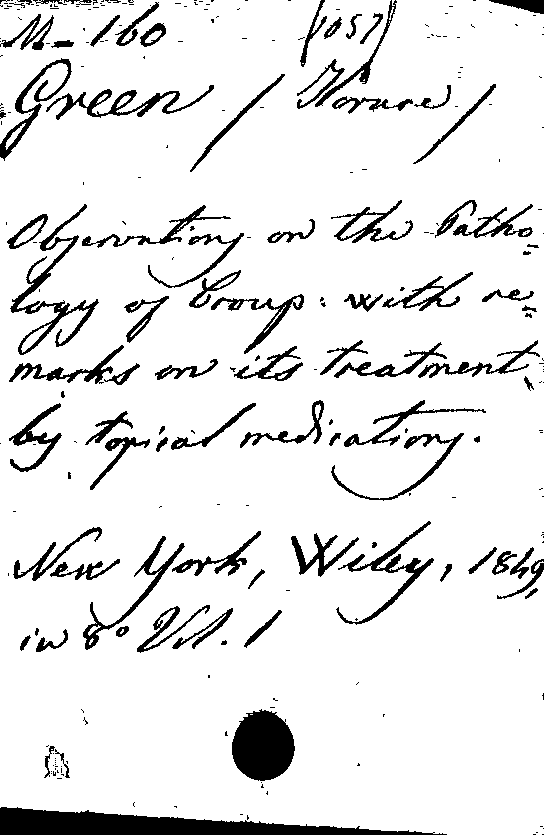 M-160 (1057)
Green / Horace /
Observations on the Patho=
logy of Croup: with re=
marks on its treatment,
by topical medications.
New York, Wiley, 1849,
in 8° Vol. 1